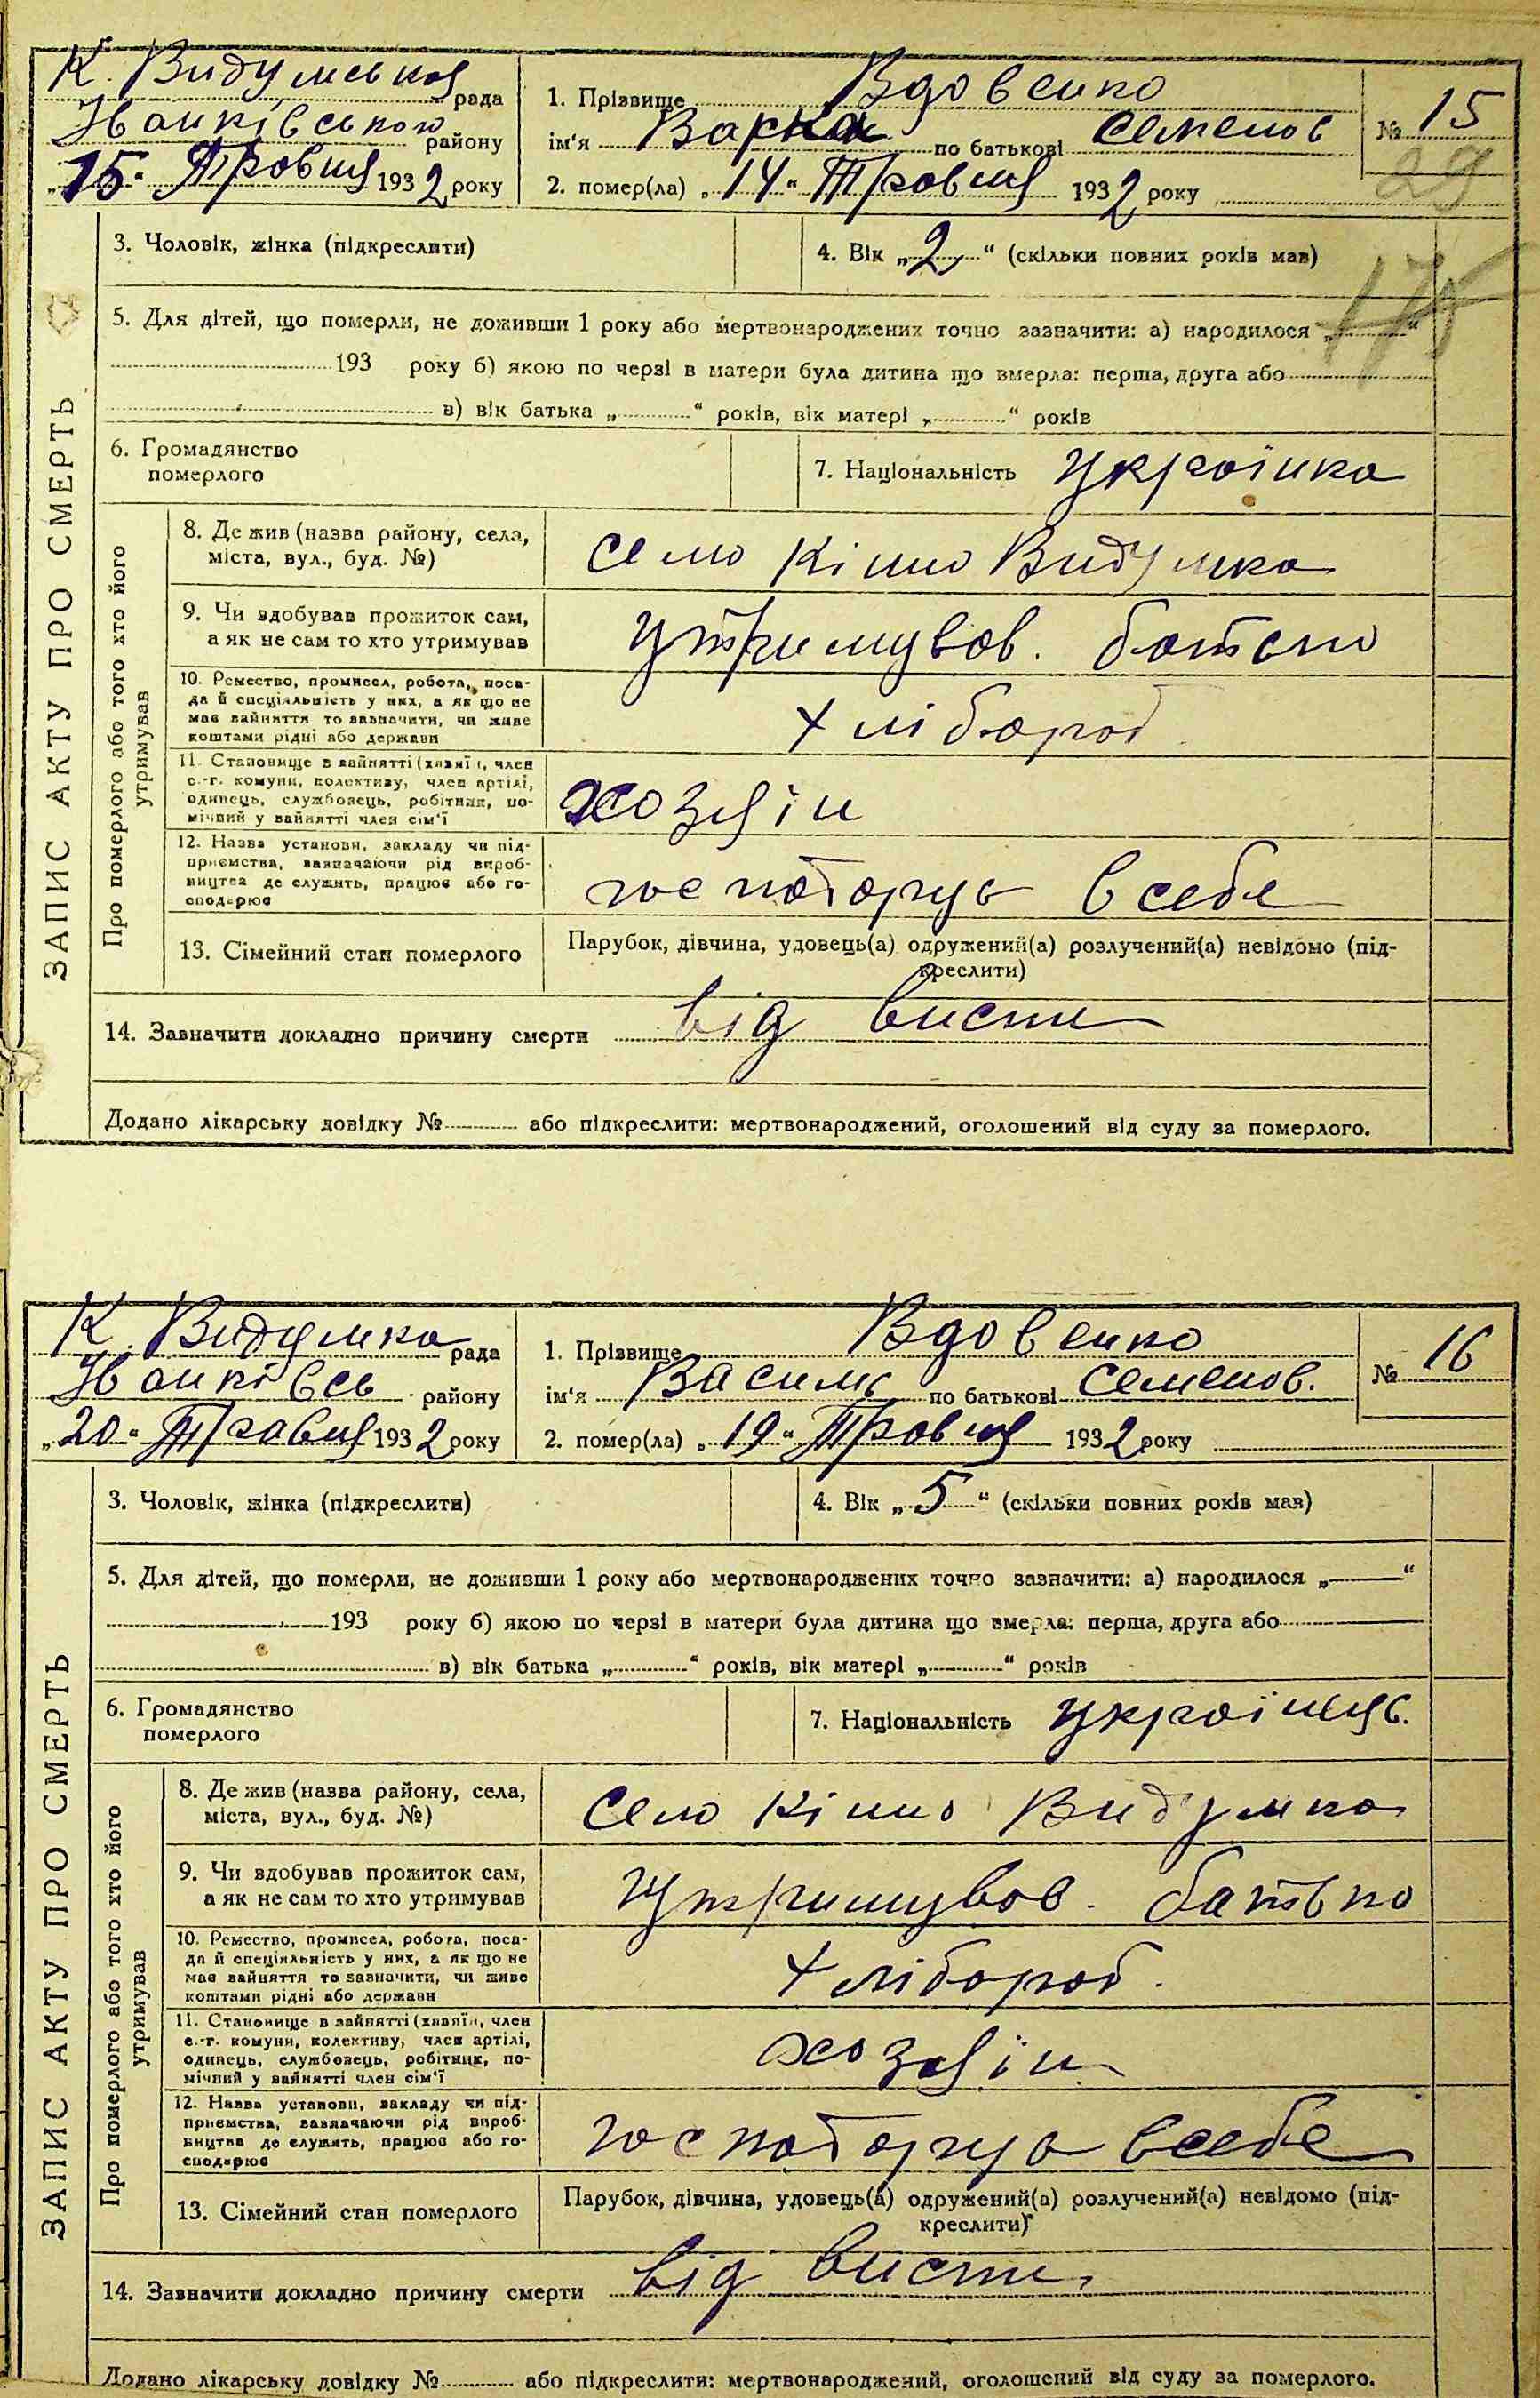 К. Видумська рада
Іванківського району
„15“ Травня 1932 року
1. Прізвище Вдовенко
ім'я Варка по батькові Семенов
2. помер(ла) „14“ Травня 1932 року
№ 15
29
175
ЗАПИС АКТУ ПРО СМЕРТЬ
3. Чоловік, жінка (підкреслити)
4. Вік „2“ (скільки повних років мав)
5. Для дітей, що померли, не доживши 1 року або мертвонароджених точно зазначити: а) народилося „ “
193 року б) якою по черзі в матери була дитина що вмерла: перша, друга або
в) вік батька „ “ років, вік матері „ “ років
6. Громадянство
померлого
7. Національність українка
Про померлого або того хто його
утримував
8. Де жив (назва району, села,
міста, вул., буд. №)
село Кінно Видумка
9. Чи здобував прожиток сам,
а як не сам то хто утримував
утримував. батько
10. Ремество, промисел, робота, поса-
да й спеціяльність у них, а як що не
має зайняття то зазначити, чи живе
коштами рідні або держави
хлібороб
11. Становище в зайнятті (хазяїн, член
с.-г. комуни, колективу, член артілі,
одинець, службовець, робітник, по-
мічний у зайнятті член сім'ї
хозяін
12. Назва установи, закладу чи під-
приємства, зазначаючи рід вироб-
ництва де служить, працює або го-
сподарює
господарує в себе
13. Сімейний стан померлого
Парубок, дівчина, удовець(а) одружений(а) розлучений(а) невідомо (під-
креслити)
14. Зазначити докладно причину смерти від висипи
Додано лікарську довідку № або підкреслити: мертвонароджений, оголошений від суду за померлого.
К. Видумка рада
Іванківсь району
„20“ Травня 1932 року
1. Прізвище Вдовенко
ім'я Василь по батькові Семенов.
2. помер(ла) „19“ Травня 1932 року
№ 16
ЗАПИС АКТУ ПРО СМЕРТЬ
3. Чоловік, жінка (підкреслити)
4. Вік „5“ (скільки повних років мав)
5. Для дітей, що померли, не доживши 1 року або мертвонароджених точно зазначити: а) народилося „ “
193 року б) якою по черзі в матери була дитина що вмерла: перша, друга або
в) вік батька „ “ років, вік матері „ “ років
6. Громадянство
померлого
7. Національність українець.
Про померлого або того хто його
утримував
8. Де жив (назва району, села,
міста, вул., буд. №)
Село Кінно Видумка
9. Чи здобував прожиток сам,
а як не сам то хто утримував
утримував. батько
10. Ремество, промисел, робота, поса-
да й спеціяльність у них, а як що не
має зайняття то зазначити, чи живе
коштами рідні або держави
хлібороб.
11. Становище в зайнятті (хазяїн, член
с.-г. комуни, колективу, член артілі,
одинець, службовець, робітник, по-
мічний у зайнятті член сім'ї
хозяін
12. Назва установи, закладу чи під-
приємства, зазначаючи рід вироб-
ництва де служить, працює або го-
сподарює
господарує в себе
13. Сімейний стан померлого
Парубок, дівчина, удовець(а) одружений(а) розлучений(а) невідомо (під-
креслити)
14. Зазначити докладно причину смерти від висипи
Додано лікарську довідку № або підкреслити: мертвонароджений, оголошений від суду за померлого.